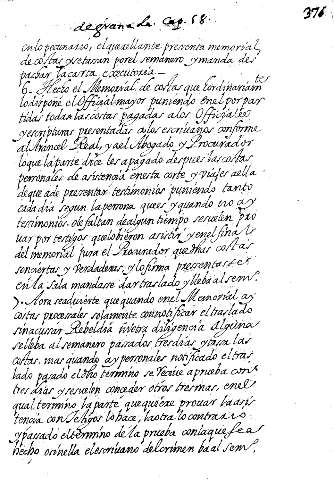 de granada. Cap. 58. 376
en lo pecuniario, el que adelante presenta memorial
de costas y se tasan por el semanero y manda des
pachar la carta executoria—
6. Hecho el Memorial de costas que hordinariamte
lo dispone el Official mayor puniendo en el por par
tidas todas las costas pagadas a los Officiales
y escripturas presentadas a los escrivanos conforme
al Arincel Real, y a el Abogado y Procurador
lo que la parte dice les a pagado despues las costas
personales de asistencia en esta corte y viajes a ella
de que a de presentar testimonios puniendo tanto
cada dia segun la persona que es y quando no ay
testimonios o le faltan de algun tiempo se suelen pro
uar por testigos que lo bieron asistir y en el final
del memorial jura el Procurador que dhas costas
son ciertas y Verdaderas, y lo firma
en la sala mandase dar traslado y lleba al sems.
7. Aora se advierte que quando en el Memorial ay
costas procesales solamente con notificar el traslado
sin acusar Rebeldia ni otra diligencia alguna
se lleba al semanero pasados tres dias y tasa las
costas. mas quando ay personales notificado el tras
lado pasado el dho termino se recive a prueba con
tres dias y se suelen conceder otros tres mas, en el
qual termino la parte que quiere provar la asis
tencia con testigos lo hace, la otra lo contrario
y pasado el termino de la prueba con la que se a
hecho o sin ella el escrivano del crimen ba al sems.